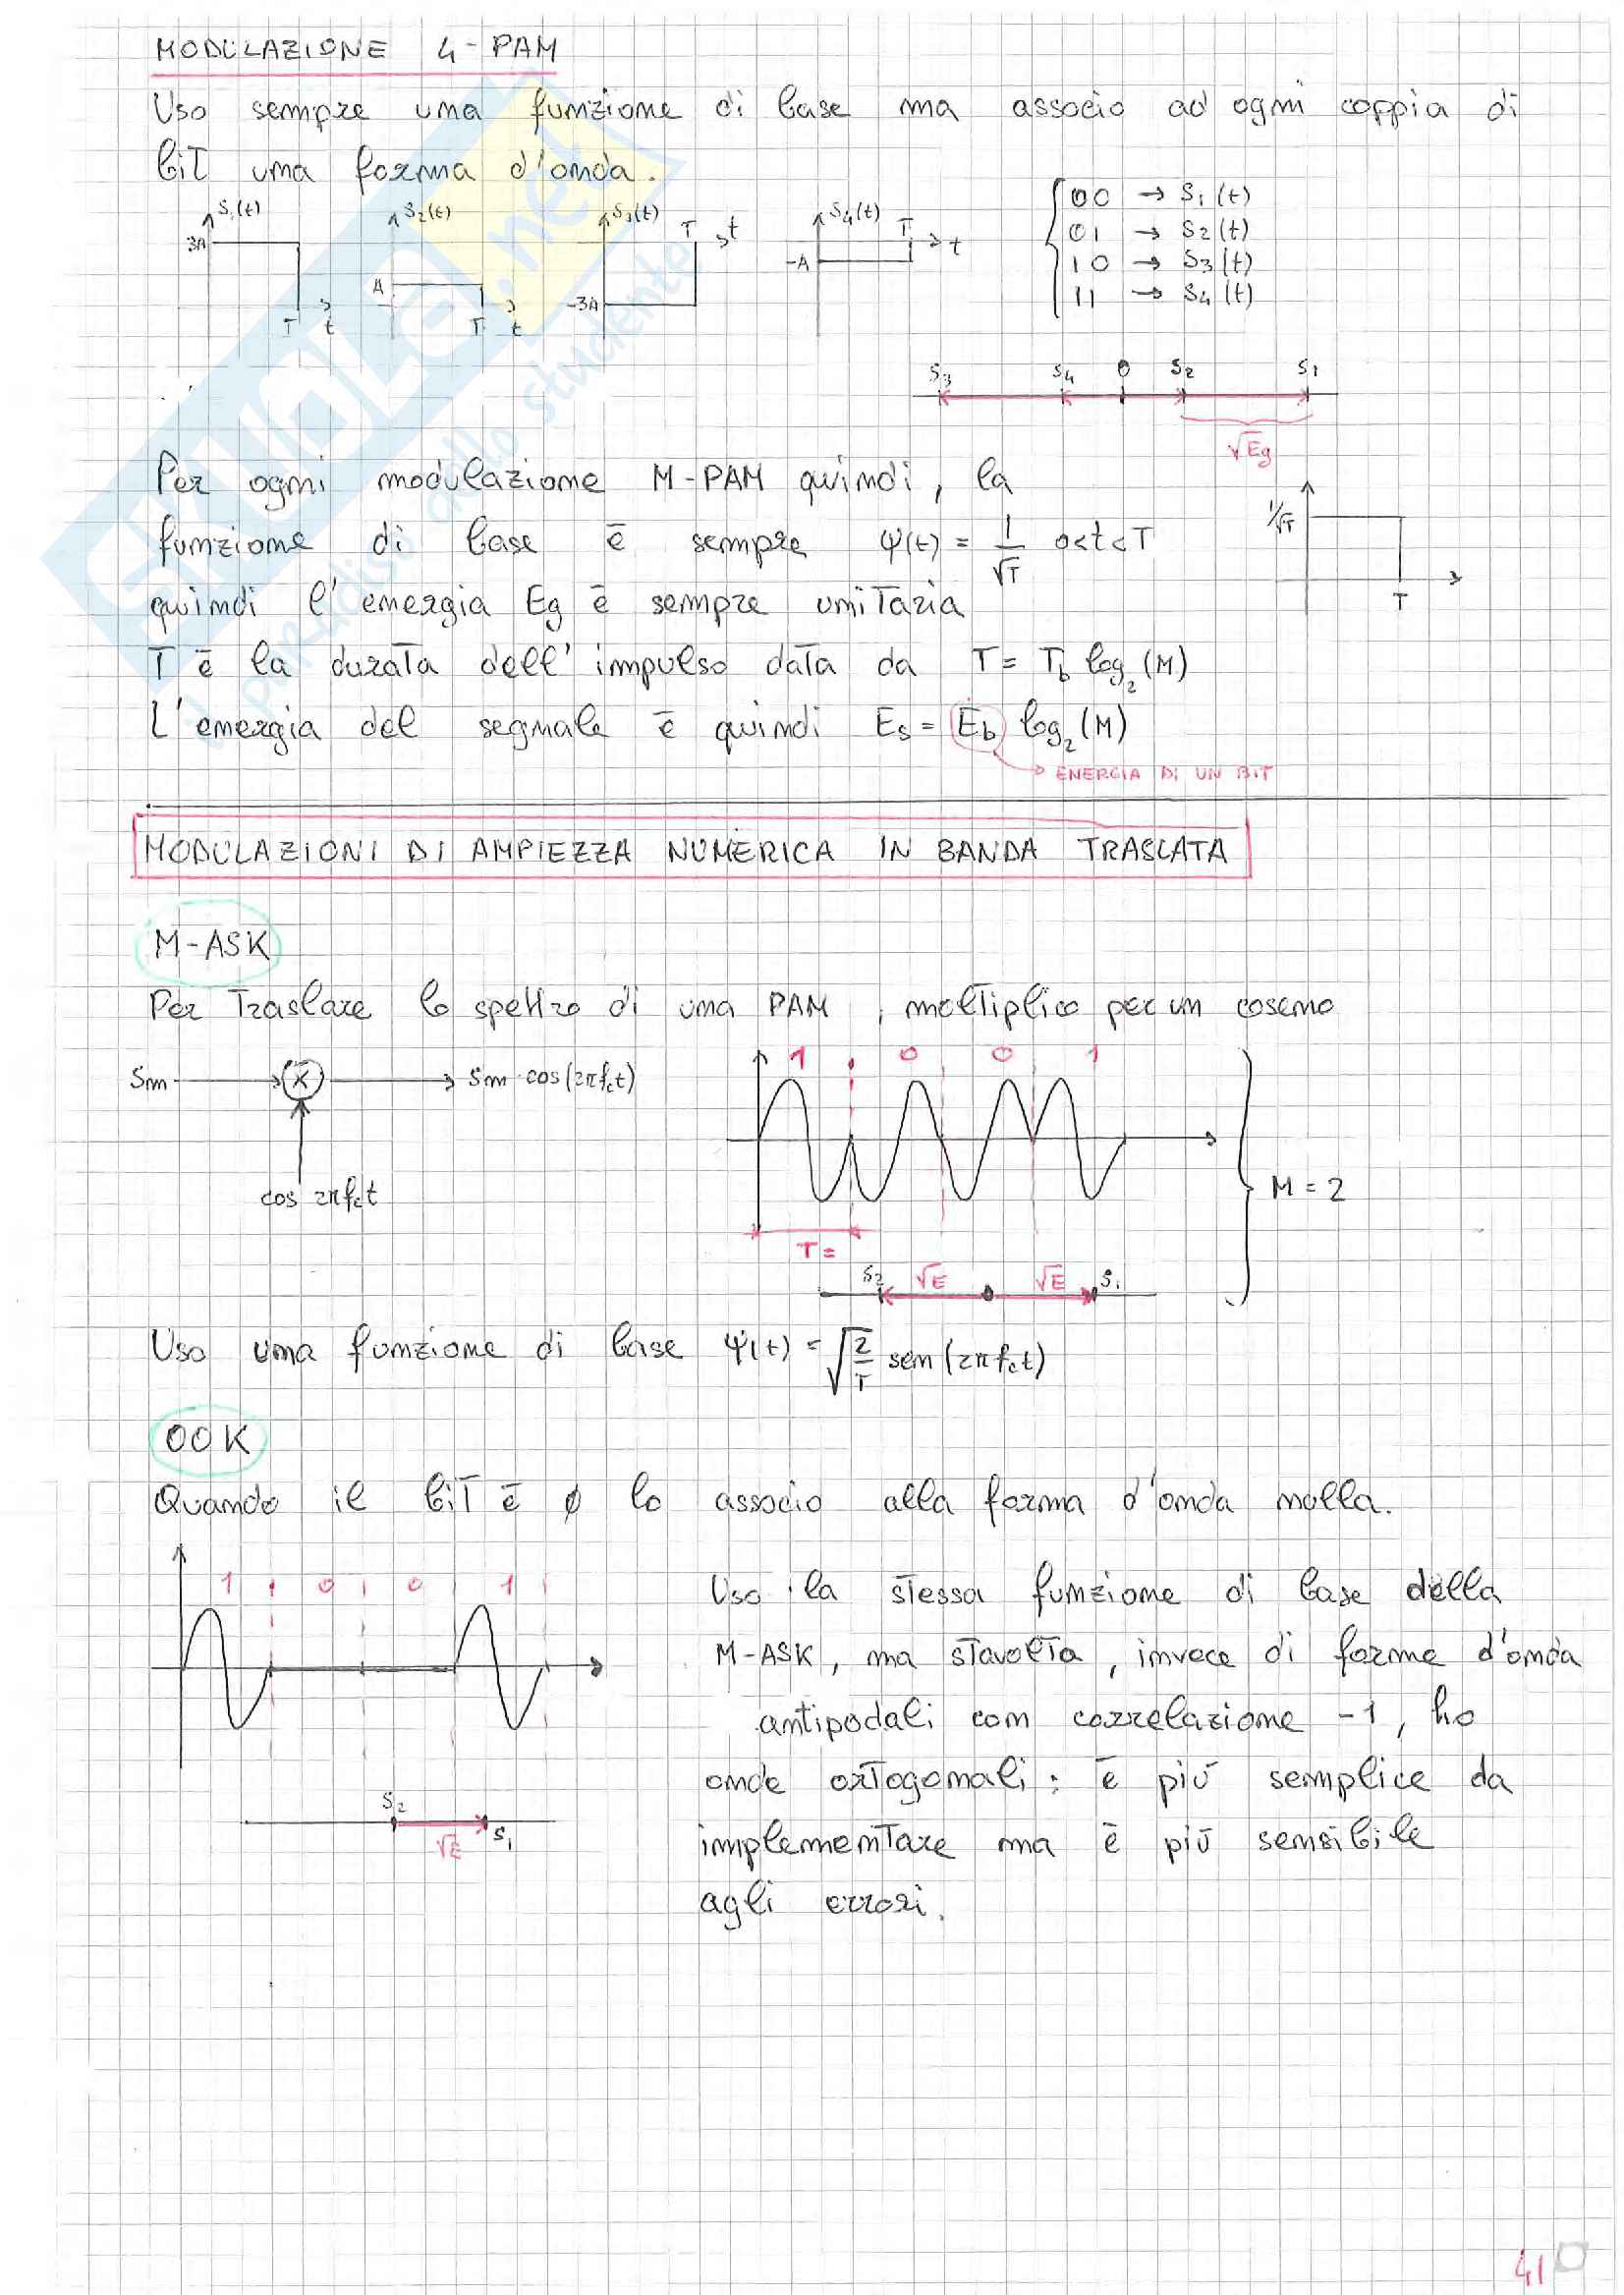 MODULAZIONE 4-PAM
Uso sempre una funzione di base ma associo ad ogni coppia di
bit una forma d'onda.
S1(t)
3A
T t
S2(t)
A
T t
S3(t)
T t
-3A
S4(t)
T t
-A
00 → S1(t)
01 → S2(t)
10 → S3(t)
11 → S4(t)
S3 S4 0 S2 S1
√Eg
Per ogni modulazione M-PAM quindi, la
funzione di base è sempre ψ(t) = 1/√T 0<t<T
1/√T
T
quindi l'energia Eg è sempre unitaria
T è la durata dell'impulso data da T = Tb log2(M)
L'energia del segnale è quindi Es = Eb log2(M)
→ ENERGIA DI UN BIT
MODULAZIONI DI AMPIEZZA NUMERICA IN BANDA TRASLATA
M-ASK
Per traslare lo spettro di una PAM, moltiplico per un coseno
Sm → X → Sm·cos(2πfct)
cos 2πfct
1 0 0 1
T =
M = 2
S2 √E √E S1
Uso una funzione di base ψ(t) = √2/T sen(2πfct)
OOK
Quando il bit è ø lo associo alla forma d'onda nulla.
1 0 0 1
S2 √E S1
Uso la stessa funzione di base della
M-ASK, ma stavolta, invece di forme d'onda
antipodali con correlazione -1, ho
onde ortogonali: è più semplice da
implementare ma è più sensibile
agli errori.
41